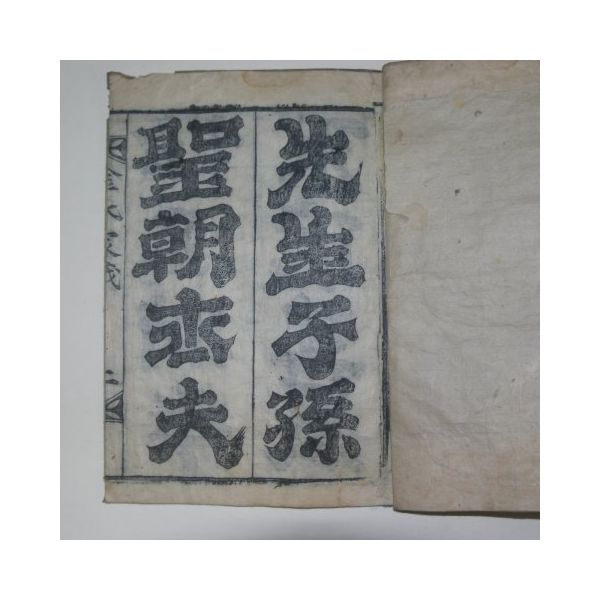 先生子孫
聖朝夫